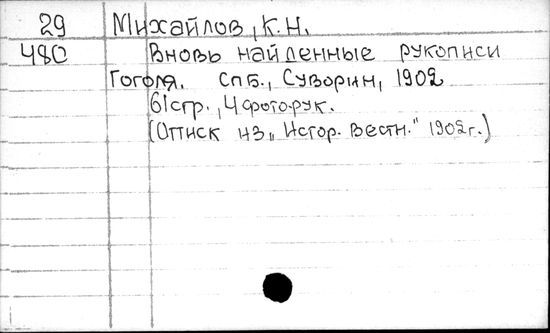 29 Михайлов, К.Н.
480 Вновь найденные рукописи
Гоголя. Спб., Суворин, 1902
61стр., 4фото.рук.
(Оттиск из „Истор. Вестн." 1902г.)